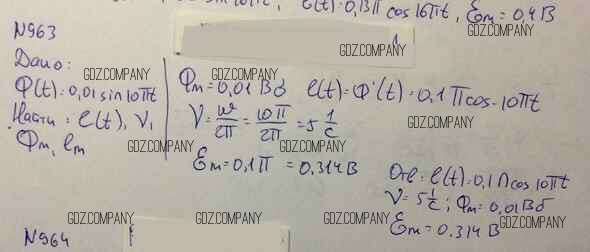 e(t)=0,1π cos 16πt, ℰm=0,4В
N963
Дано:
Φ(t)=0,01 sin 10πt
Найти: e(t), ν,
Φm, em
Φm=0,01 Вб e(t)=Φ'(t)=0,1π cos 10πt
ν=ω/2π=10π/2π=5 1/с
ℰm=0,1π=0,314В
Отв: e(t)=0,1π cos 10πt
ν=5 1/с; Φm=0,01Вб
ℰm=0.314 В
N964
GDZ.COMPANY
GDZ.COMPANY
GDZ.COMPANY
GDZ.COMPANY
GDZ.COMPANY
GDZ.COMPANY
GDZ.COMPANY
GDZ.COMPANY
GDZ.COMPANY
GDZ.COMPANY
GDZ.COMPANY
GDZ.COMPANY
GDZ.COMPANY